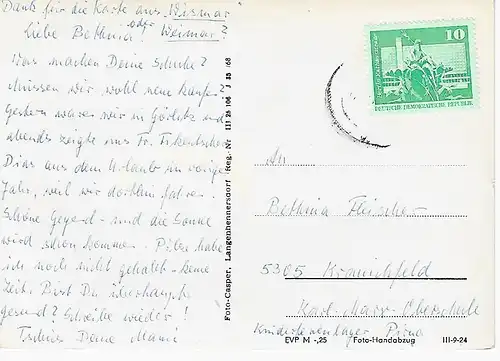 Dank für die Karte aus "Wismar"
oder
Liebe Bettina! Weimar?
Was machen Deine Schuhe?
Müssen wir wohl neue kaufen?
Gestern waren wir in Görlitz und
abends zeigte uns Fr.
Dias aus dem Urlaub im vorigen
Jahr, weil wir dorthin fahren.
Schöne Gegend - und die Sonne
wird schon kommen. Pilze habe
ich noch nicht gehabt - keine
Zeit. Bist Du überhaupt
gesund? Schreibe wieder!
Tschüs Deine Mami
Foto-Casper, Langenhennersdorf Reg.-Nr III 25 106 J 35 68
10
DEUTSCHE DEMOKRATISCHE REPUBLIK
An
Bettina Fleischer
5305 Kranichfeld
Karl-Marx-Oberschule
Kinderferienlager Pirna
EVP M -,25 Foto-Handabzug III-9-24